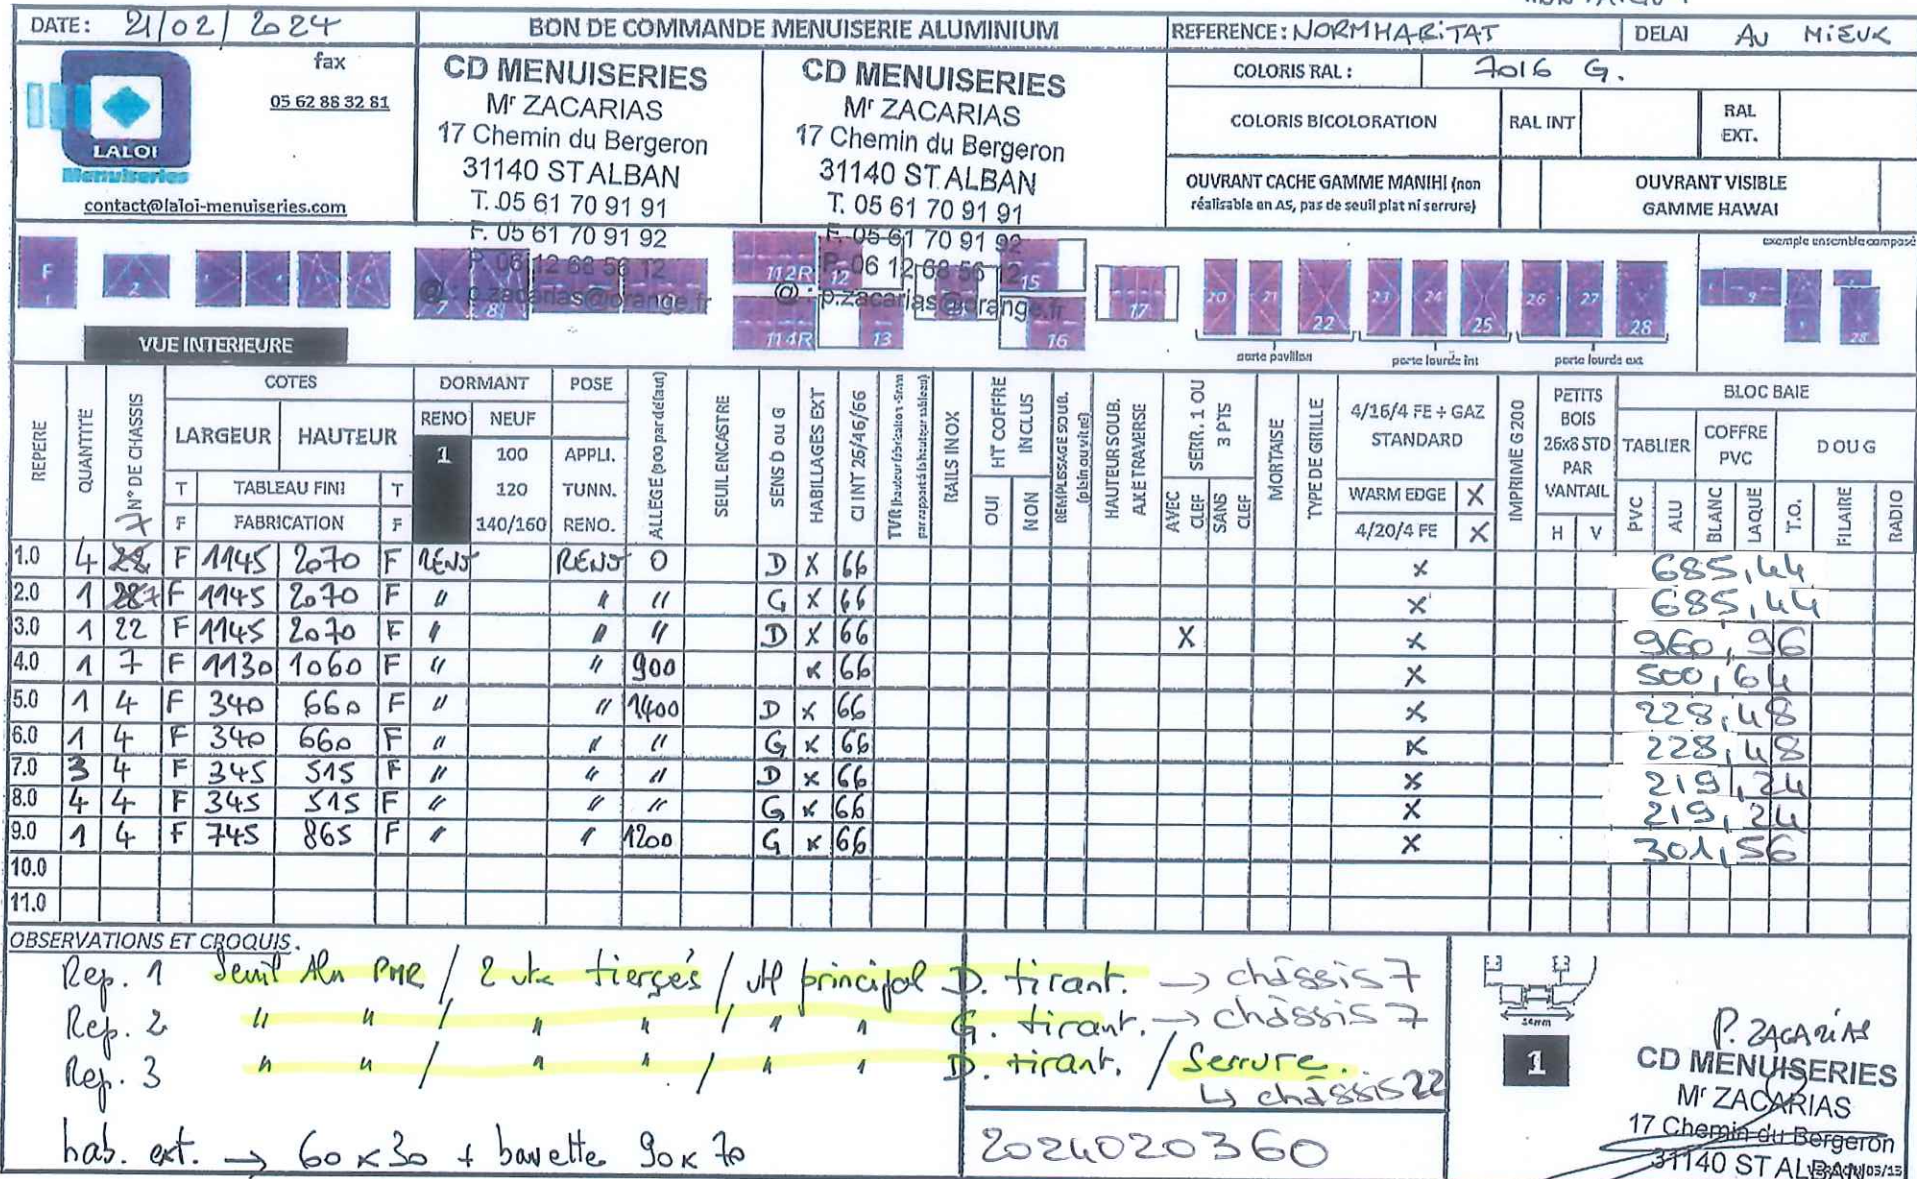 DATE: 21/02/2024
BON DE COMMANDE MENUISERIE ALUMINIUM
REFERENCE: NORMHARITAT
DELAI AU MIEUX
fax
05 62 88 32 81
LALOI
Menuiseries
contact@laloi-menuiseries.com
CD MENUISERIES
Mr ZACARIAS
17 Chemin du Bergeron
31140 ST ALBAN
T. 05 61 70 91 91
F. 05 61 70 91 92
P. 06 12 68 56 12
@ : p.zacarias@orange.fr
CD MENUISERIES
Mr ZACARIAS
17 Chemin du Bergeron
31140 ST ALBAN
T. 05 61 70 91 91
F. 05 61 70 91 92
P. 06 12 68 56 12
@ : p.zacarias@orange.fr
COLORIS RAL : 7016 G.
COLORIS BICOLORATION RAL INT RAL EXT.
OUVRANT CACHE GAMME MANIHI (non
réalisable en AS, pas de seuil plat ni serrure)
OUVRANT VISIBLE
GAMME HAWAI
exemple ensemble composé
F 1 2 7 8 112R 12 15 17 20 21 22 23 24 25 26 27 28 9 28
114R 13 16
porte pavillon porte lourde int porte lourde ext
VUE INTERIEURE
REPERE
QUANTITÉ
N° DE CHASSIS
7
COTES
LARGEUR HAUTEUR
T TABLEAU FINI T
F FABRICATION F
DORMANT
RENO NEUF
1 100
120
140/160
POSE
APPLI.
TUNN.
RENO.
ALLÈGE (900 par défaut)
SEUIL ENCASTRE
SENS D ou G
HABILLAGES EXT
CI INT 26/46/66
RAILS INOX
HT COFFRE INCLUS
OUI NON
REMPLISSAGE SOUB. (plain ou vitré)
HAUTEUR SOUB. AXE TRAVERSE
SERR. 1 OU 3 PTS
AVEC CLEF SANS CLEF
MORTAISE
TYPE DE GRILLE
4/16/4 FE + GAZ
STANDARD
WARM EDGE X
4/20/4 FE X
IMPRIME G200
PETITS
BOIS
26x8 STD
PAR
VANTAIL
H V
BLOC BAIE
TABLIER COFFRE PVC D OU G
PVC ALU BLANC LAQUE T.O. FILAIRE RADIO
1.0 4 28 F 1145 2070 F RENO RENO 0 D X 66 X 685,44
2.0 1 28 7 F 1145 2070 F " " " G X 66 X 685,44
3.0 1 22 F 1145 2070 F " " " D X 66 X X 960,96
4.0 1 7 F 1130 1060 F " " 900 X 66 X 500,64
5.0 1 4 F 340 660 F " " 1400 D X 66 X 228,48
6.0 1 4 F 340 660 F " " " G X 66 X 228,48
7.0 3 4 F 345 515 F " " " D X 66 X 219,24
8.0 4 4 F 345 515 F " " " G X 66 X 219,24
9.0 1 4 F 745 865 F " " 1200 G X 66 X 301,56
10.0
11.0
OBSERVATIONS ET CROQUIS.
Rep. 1 Seuil Alu PMR / 2 vtx tierçés / vtl principal D. tirant. → châssis 7
Rep. 2 " " / " " / " " G. tirant. → châssis 7
Rep. 3 " " / " " / " " D. tirant. / Serrure.
↳ châssis 22
hab. ext. → 60 x 30 + bavette 90 x 70
2024020360
1
P. ZACARIAS
CD MENUISERIES
Mr ZACARIAS
17 Chemin du Bergeron
31140 ST ALBAN